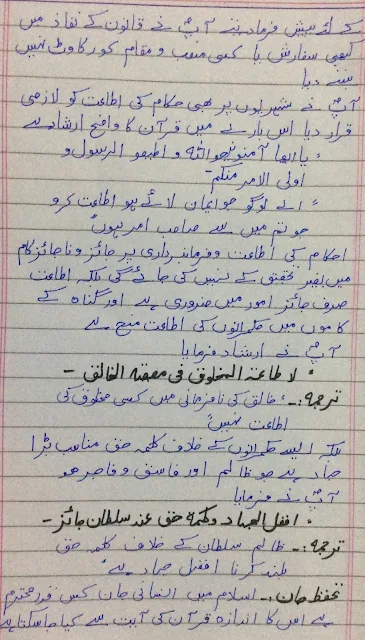 کے لئے پیش فرما دیتے آپؐ نے قانون کے نفاذ میں
کبھی سفارش یا کسی منصب و مقام کو رکاوٹ نہیں
بننے دیا
آپؐ نے شہریوں پر بھی حکام کی اطاعت کو لازمی
قرار دیا اس بارے میں قرآن کا واضح ارشاد ہے
"یاایھا آمنو اللہ و اطیعو الرسول و
اولی الامر منکم"
"اے لوگو جو ایمان لائے ہو اطاعت کرو
جو تم میں سے صاحب امر ہوں"
احکام کی اطاعت و فرمانبرداری ہر جائز و ناجائز کام
میں بغیر تحقیق کے نہیں کی جائے گی بلکہ اطاعت
صرف جائز امور میں ضروری ہے اور گناہ کے
کاموں میں حکمرانوں کی اطاعت منع ہے
آپؐ نے ارشاد فرمایا
"لا طاعتہ المخلوق فی معصتہ الخالق"
ترجمہ:۔ "خالق کی نافرمانی میں کسی مخلوق کی
اطاعت نہیں"
بلکہ ایسے حکمرانوں کے خلاف کلمہ حق مناسب بڑا
جہاد ہے جو ظالم اور فاسق و فاجر ہو
آپؐ نے فرمایا
"افضل الجہاد و کلمۃ حق عند سلطان جائز"
ترجمہ:۔ ظالم سلطان کے خلاف کلمہ حق
بلند کرنا افضل جہاد ہے"
تحفظ جان:۔ اسلام میں انسانی جان کس قدر محترم
ہے اس کا اندازہ قرآن کی آیت سے کیا جا سکتا ہے